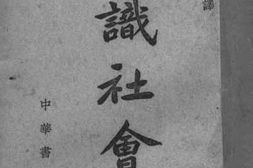 譯
識社會
中華書